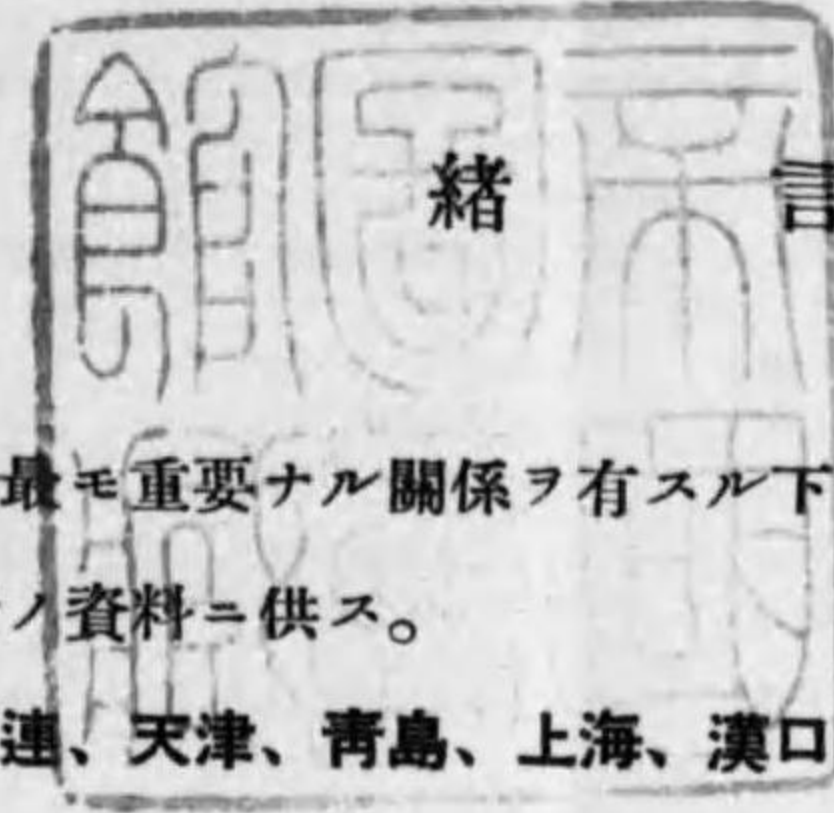 緒言
最モ重要ナル關係ヲ有スル下
ノ資料ニ供ス。
連、天津、靑島、上海、漢口